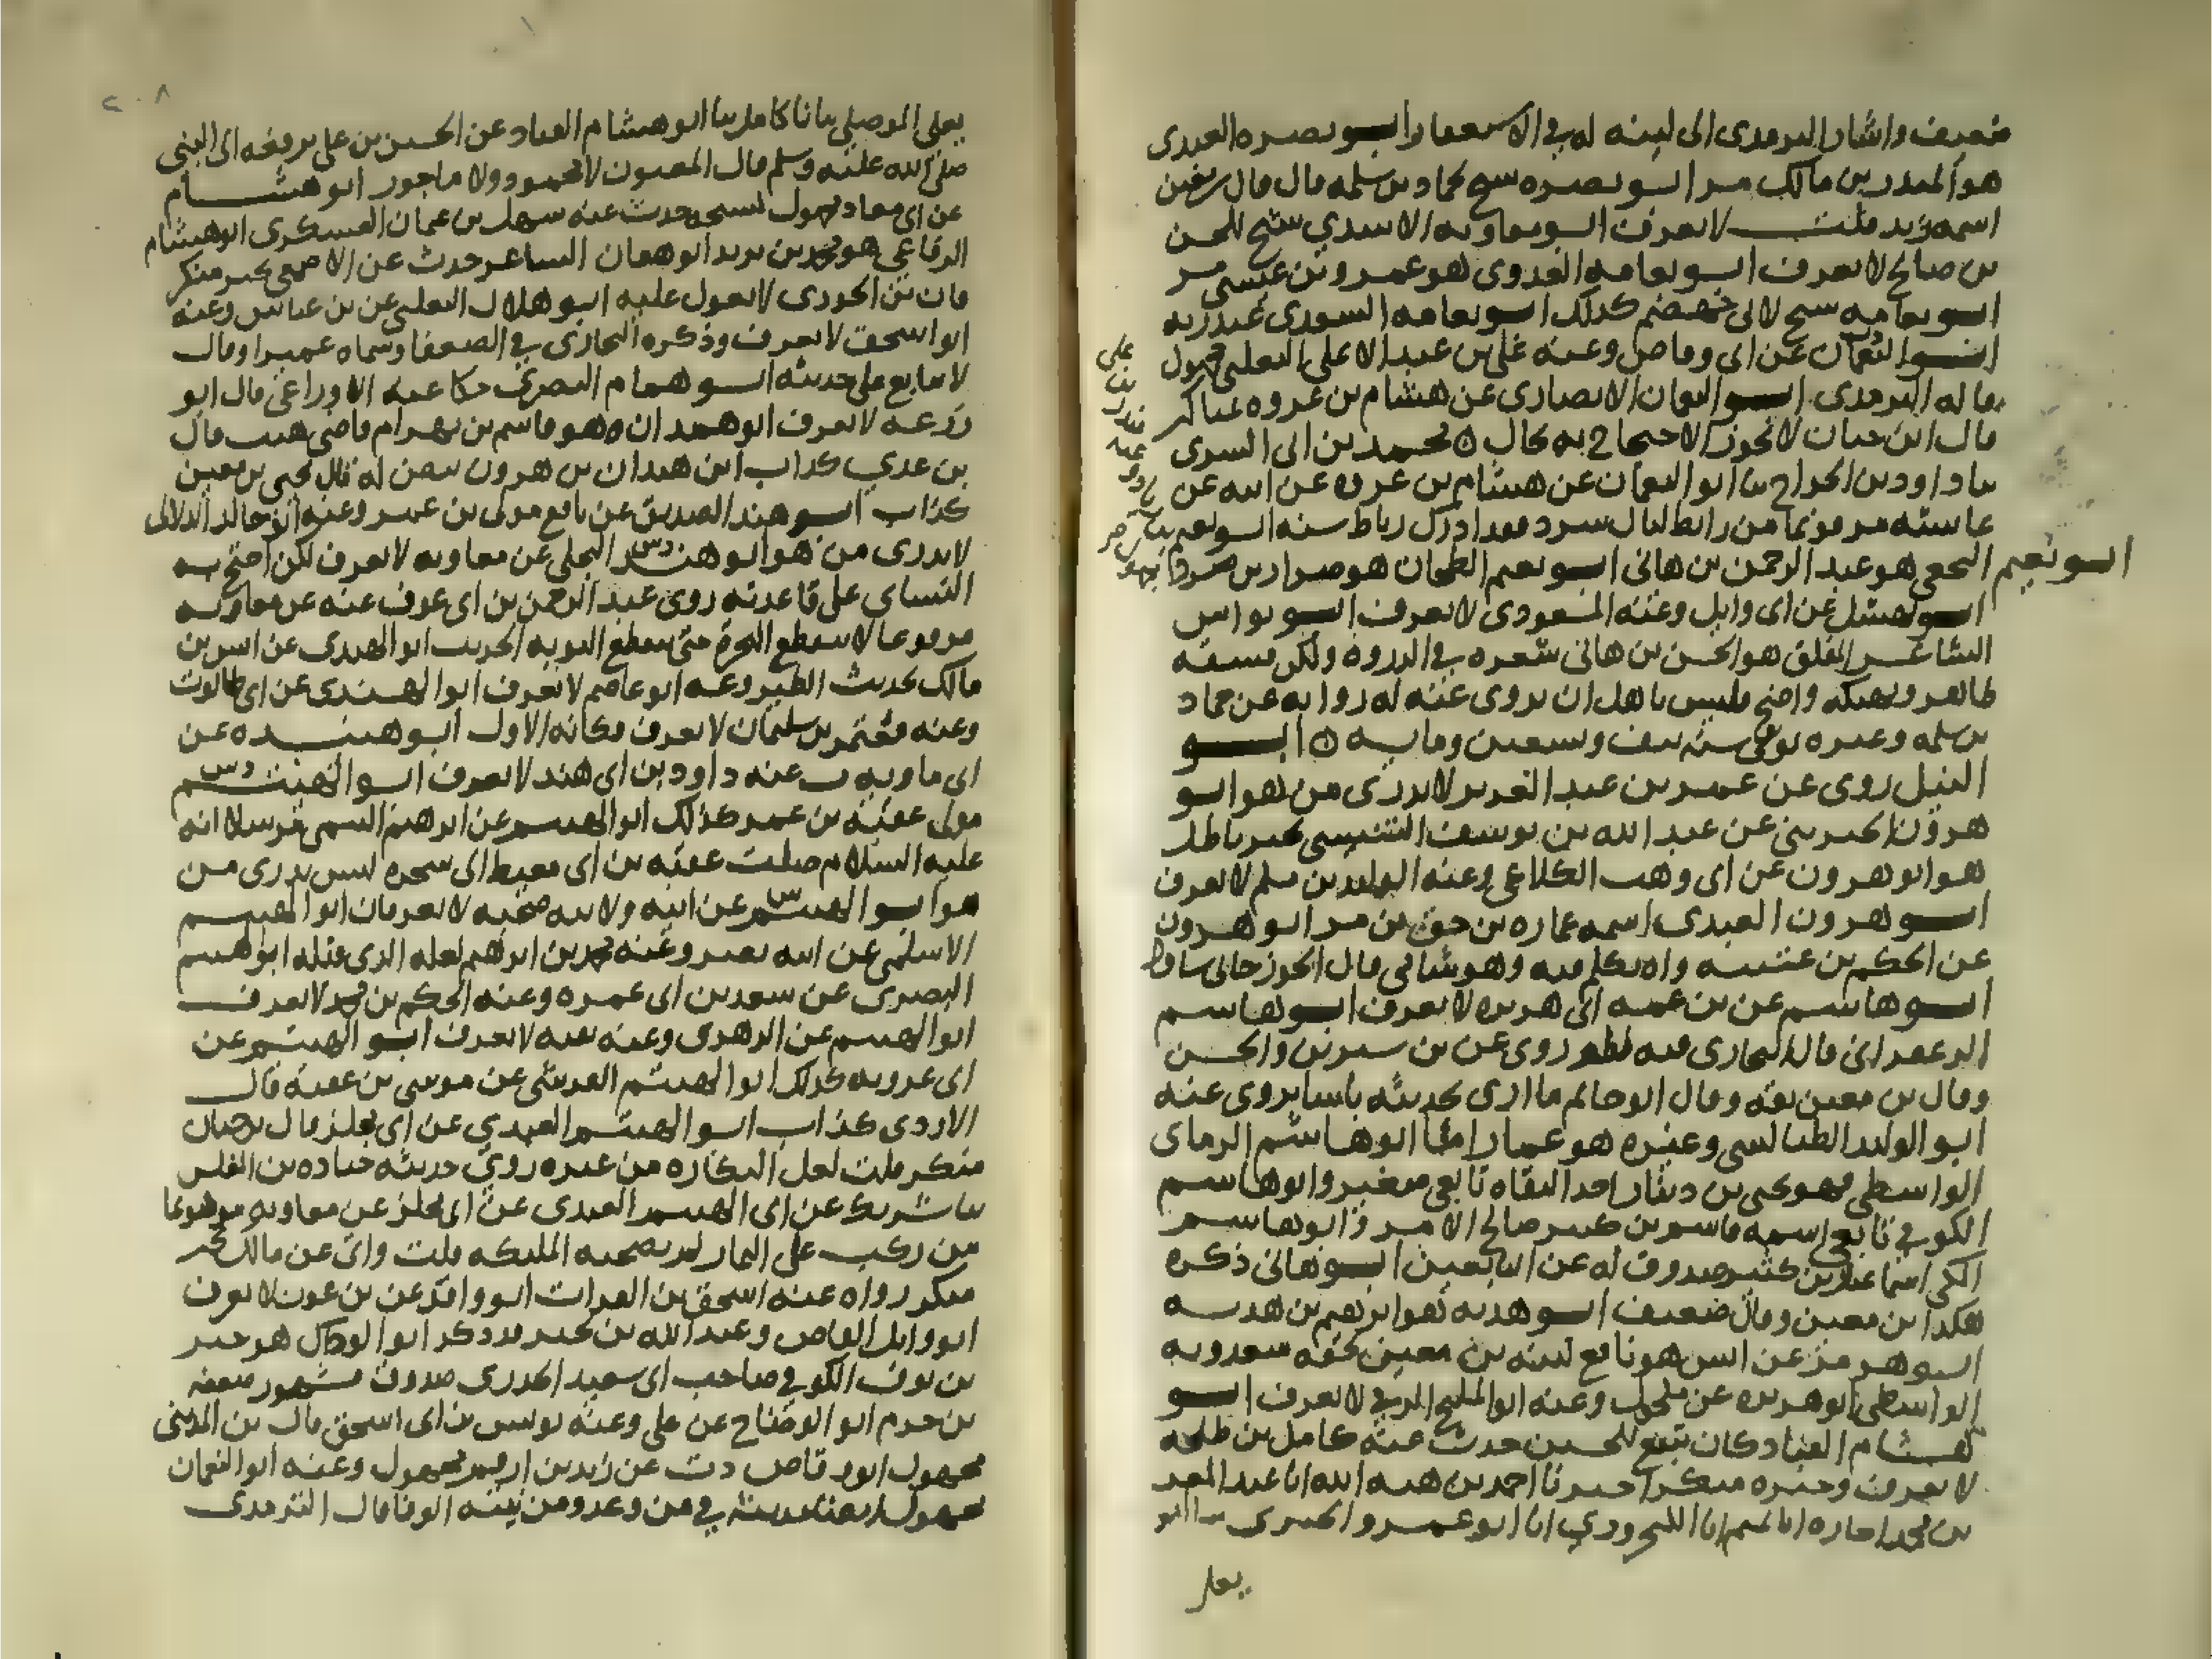 ضعيف واشار الترمذي الى لينه له في الاستغفار ابو نصره العبدي
هو المنذر بن مالك مر ابو نصره شيخ لحماد بن سلمه قال قال بن معين
اسمه زيد قلت لا يعرف ابو معاويه الاسدي شيخ للحسن
بن صالح لا يعرف ابو نعامه العدوي هو عمرو بن عيسى مر
ابو نعامه شيخ لابي كذلك ابو نعامه السعدي عبد ربه
ابو النعمان عن ابي وقاص وعنه علي بن عبد الاعلى الثعلبي مجهول
قاله الترمذي ابو النعمان الانصاري عن هشام بن عروه مناكير
قال ابن حبان لا يجوز الاحتجاج به بحال ٥ محمد بن ابي السري
ثنا داود بن الجراح ثنا ابو النعمان عن هشام بن عروه عن ابيه عن
عائشه مرفوعا من رابط ليال فقد ادرك رباط سنه ابو نعيم
ابو نعيم النخعي هو عبد الرحمن بن هاني ابو نعيم الطحان هو ضرار بن صرد
ابو نهشل عن ابي وايل وعنه المسعودي لا يعرف ابو نواس
الشاعر المفلق هو الحسن بن هاني شعره في الذروه ولكن فسقه
ظاهر وتهتكه واضح فليس باهل ان يروى عنه له روايه عن حماد
بن سلمه وغيره توفي سنه نيف وتسعين ومايه ٥ ابو
النيل روى عن عمر بن عبد العزيز لا يدرى من هو ابو
هرون الجبريني عن عبد الله بن يوسف التنيسي بخبر باطل
هو ابو هرون عن ابي وهب الكلاعي وعنه الوليد بن مسلم لا يعرف
ابو هرون العبدي اسمه عماره بن جوين مر ابو هرون
عن الحكم بن عتيبه واه تكلم فيه وهو شامي قال الجوزجاني ساقط
ابو هاشم عن بن عمه ابي هريره لا يعرف ابو هاشم
الزعفراني قال البخاري فيه نظر روى عن بن سيرين والحسن
وقال بن معين ثقه وقال ابو حاتم ما ارى بحديثه باسا يروي عنه
ابو الوليد الطيالسي وغيره هو عمار اما ابو هاشم الرماني
الواسطي فهو يحيى بن دينار احد الثقاه تابعي صغير وابو هاشم
الكوفي تابعي اسمه قاسم بن كثير صالح الامر وابو هاشم
المكي اسماعيل بن كثير صدوق له عن التابعين ابو هاني ذكره
هكذا بن معين وقال ضعيف ابو هدبه هو ابراهيم بن هدبه
ابو هرمز عن انس هو نافع لينه بن معين لحقه سعدويه
الواسطي ابو هريره عن مكحول وعنه ابو المليح الرقي لا يعرف ابو
هشام القناد كان يبيع للحسين حدث عنه كامل بن طلحه
لا يعرف وخبره منكر اخبرنا احمد بن هبه الله انا عبد المعز
بن محمد اجازه انا تميم انا الكنجرودي انا ابو عمرو الحيري ثنا ابو
يعلى
٢٠٨
يعلى الموصلي ثنا كامل ثنا ابو هشام القناد عن الحسين بن علي يرفعه الى النبي
صلى الله عليه وسلم قال المغبون لا محمود ولا ماجور ابو هشام
عن ابي معاذ مجهول لشيخه حدث عنه سهل بن عثمان العسكري ابو هشام
الرفاعي هو محمد بن يزيد ابو هفان الشاعر حدث عن الاصمعي بخبر منكر
قال بن الجوزي لا يعول عليه ابو هلال التغلبي عن بن عباس وعنه
ابو اسحق لا يعرف وذكره البخاري في الضعفا وسماه عميرا وقال
لا يتابع على حديثه ابو همام البصري حكا عنه الاوزاعي قال ابو
زرعه لا يعرف ابو همدان هو قاسم بن بهرام قاضي هيت قال
بن عدي كذاب ابن همدان بن هرون قال يحيى بن معين
كذاب ابو هند الصديق عن نافع مولى بن عمر وعنه ابو خالد الدالاني
لا يدرى من هو ابو هند البجلي عن معاويه لا يعرف لكن احتج به
النسائي على قاعدته روى عبد الرحمن بن ابي عوف عنه عن معاويه
مرفوعا لا تنقطع الهجره حتى تنقطع التوبه الحديث ابو الهندي عن انس بن
مالك بحديث الطير وعنه ابو عاصم لا يعرف ابو الهندي عن ابي طالوت
وعنه معتمر بن سليمان لا يعرف وكانه الاول ابو هنيده عن
ابي ماويه عنه داود بن ابي هند لا يعرف ابو الهيثم
مولى عقبه بن عمر كذلك ابو الهيثم عن ابراهيم التيمي مرسلا انه
عليه السلام صلب عقبه بن ابي معيط الى شجره ليس يدرى من
هو ابو الهيثم عن ابيه ولابيه صحبه لا يعرفان ابو الهيثم
الاسلمي عن ابيه نصر وعنه محمد بن ابراهيم لعله الذي قبله ابو الهيثم
البصري عن سعد بن ابي عمره وعنه الحكم بن محمد لا يعرف
ابو الهيثم عن الزهري وعنه بقيه لا يعرف ابو الهيثم عن
ابي عروبه كذلك ابو الهيثم القرشي عن موسى بن عقبه قال
الازدي كذاب ابو الهيثم العبدي عن ابي مجلز قال بن حبان
منكر قلت لعل النكاره من غيره روى حديثه جباده بن المغلس
ثنا شريك عن ابي الهيثم العبدي عن ابي مجلز عن معاويه مرفوعا
من ركب على النمار لم تصحبه الملائكه قلت واتى عن مالك بخبر
منكر رواه عنه اسحق بن الفرات ابو واقد عن بن عون لا يعرف
ابو وايل القاص وعبد الله بن بحير قد ذكر ابو الوداك هو جبر
بن نوف الكوفي صاحب ابي سعيد الخدري صدوق مشهور ضعفه
بن حزم ابو الوضاح عن علي وعنه يونس بن ابي اسحق قال بن المديني
مجهول ابو وقاص دت عن زيد بن ارقم مجهول وعنه ابو النعمان
مجهول ايضا حديثه في من وعد ومن نيته الوفا قال الترمذي